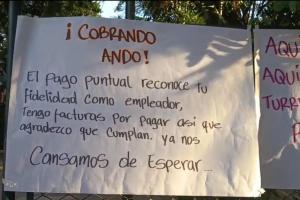 ¡COBRANDO
ANDO!
El pago puntual reconoce tu
fidelidad como empleador,
Tengo facturas por pagar asi que
agradezco que cumplan. ya nos
Cansamos de Esperar...
AQUÍ
AQUÍ
TURB